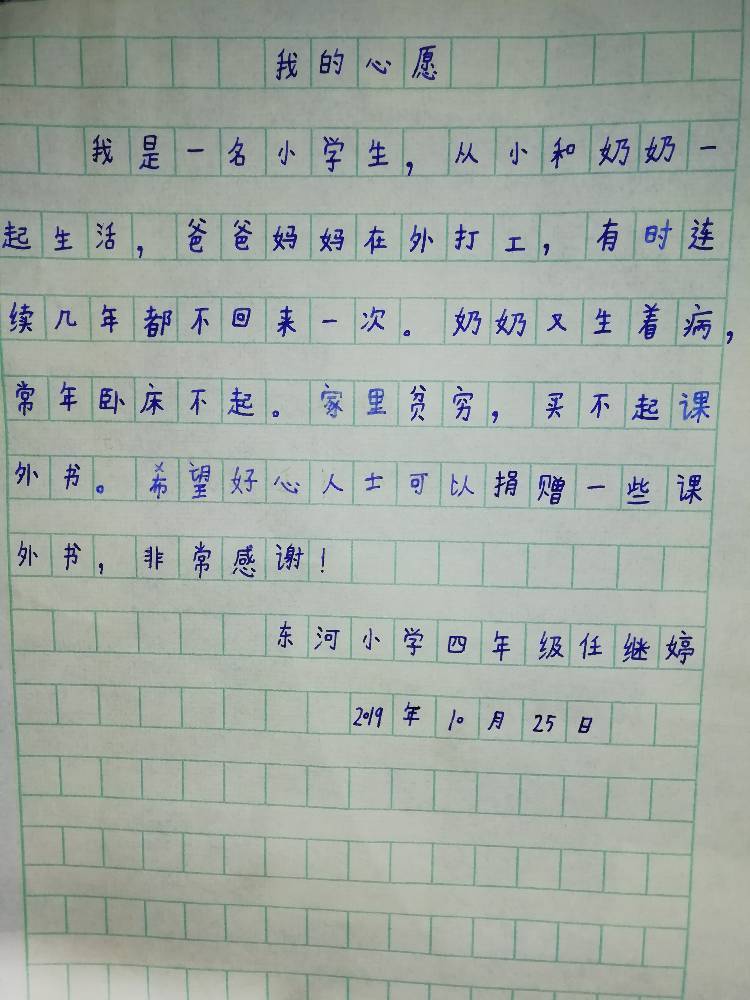 我的心愿
我是一名小学生，从小和奶奶一
起生活，爸爸妈妈在外打工，有时连
续几年都不回来一次。奶奶又生着病，
常年卧床不起。家里贫穷，买不起课
外书。希望好心人士可以捐赠一些课
外书，非常感谢！
东河小学四年级任继婷
2019年10月25日